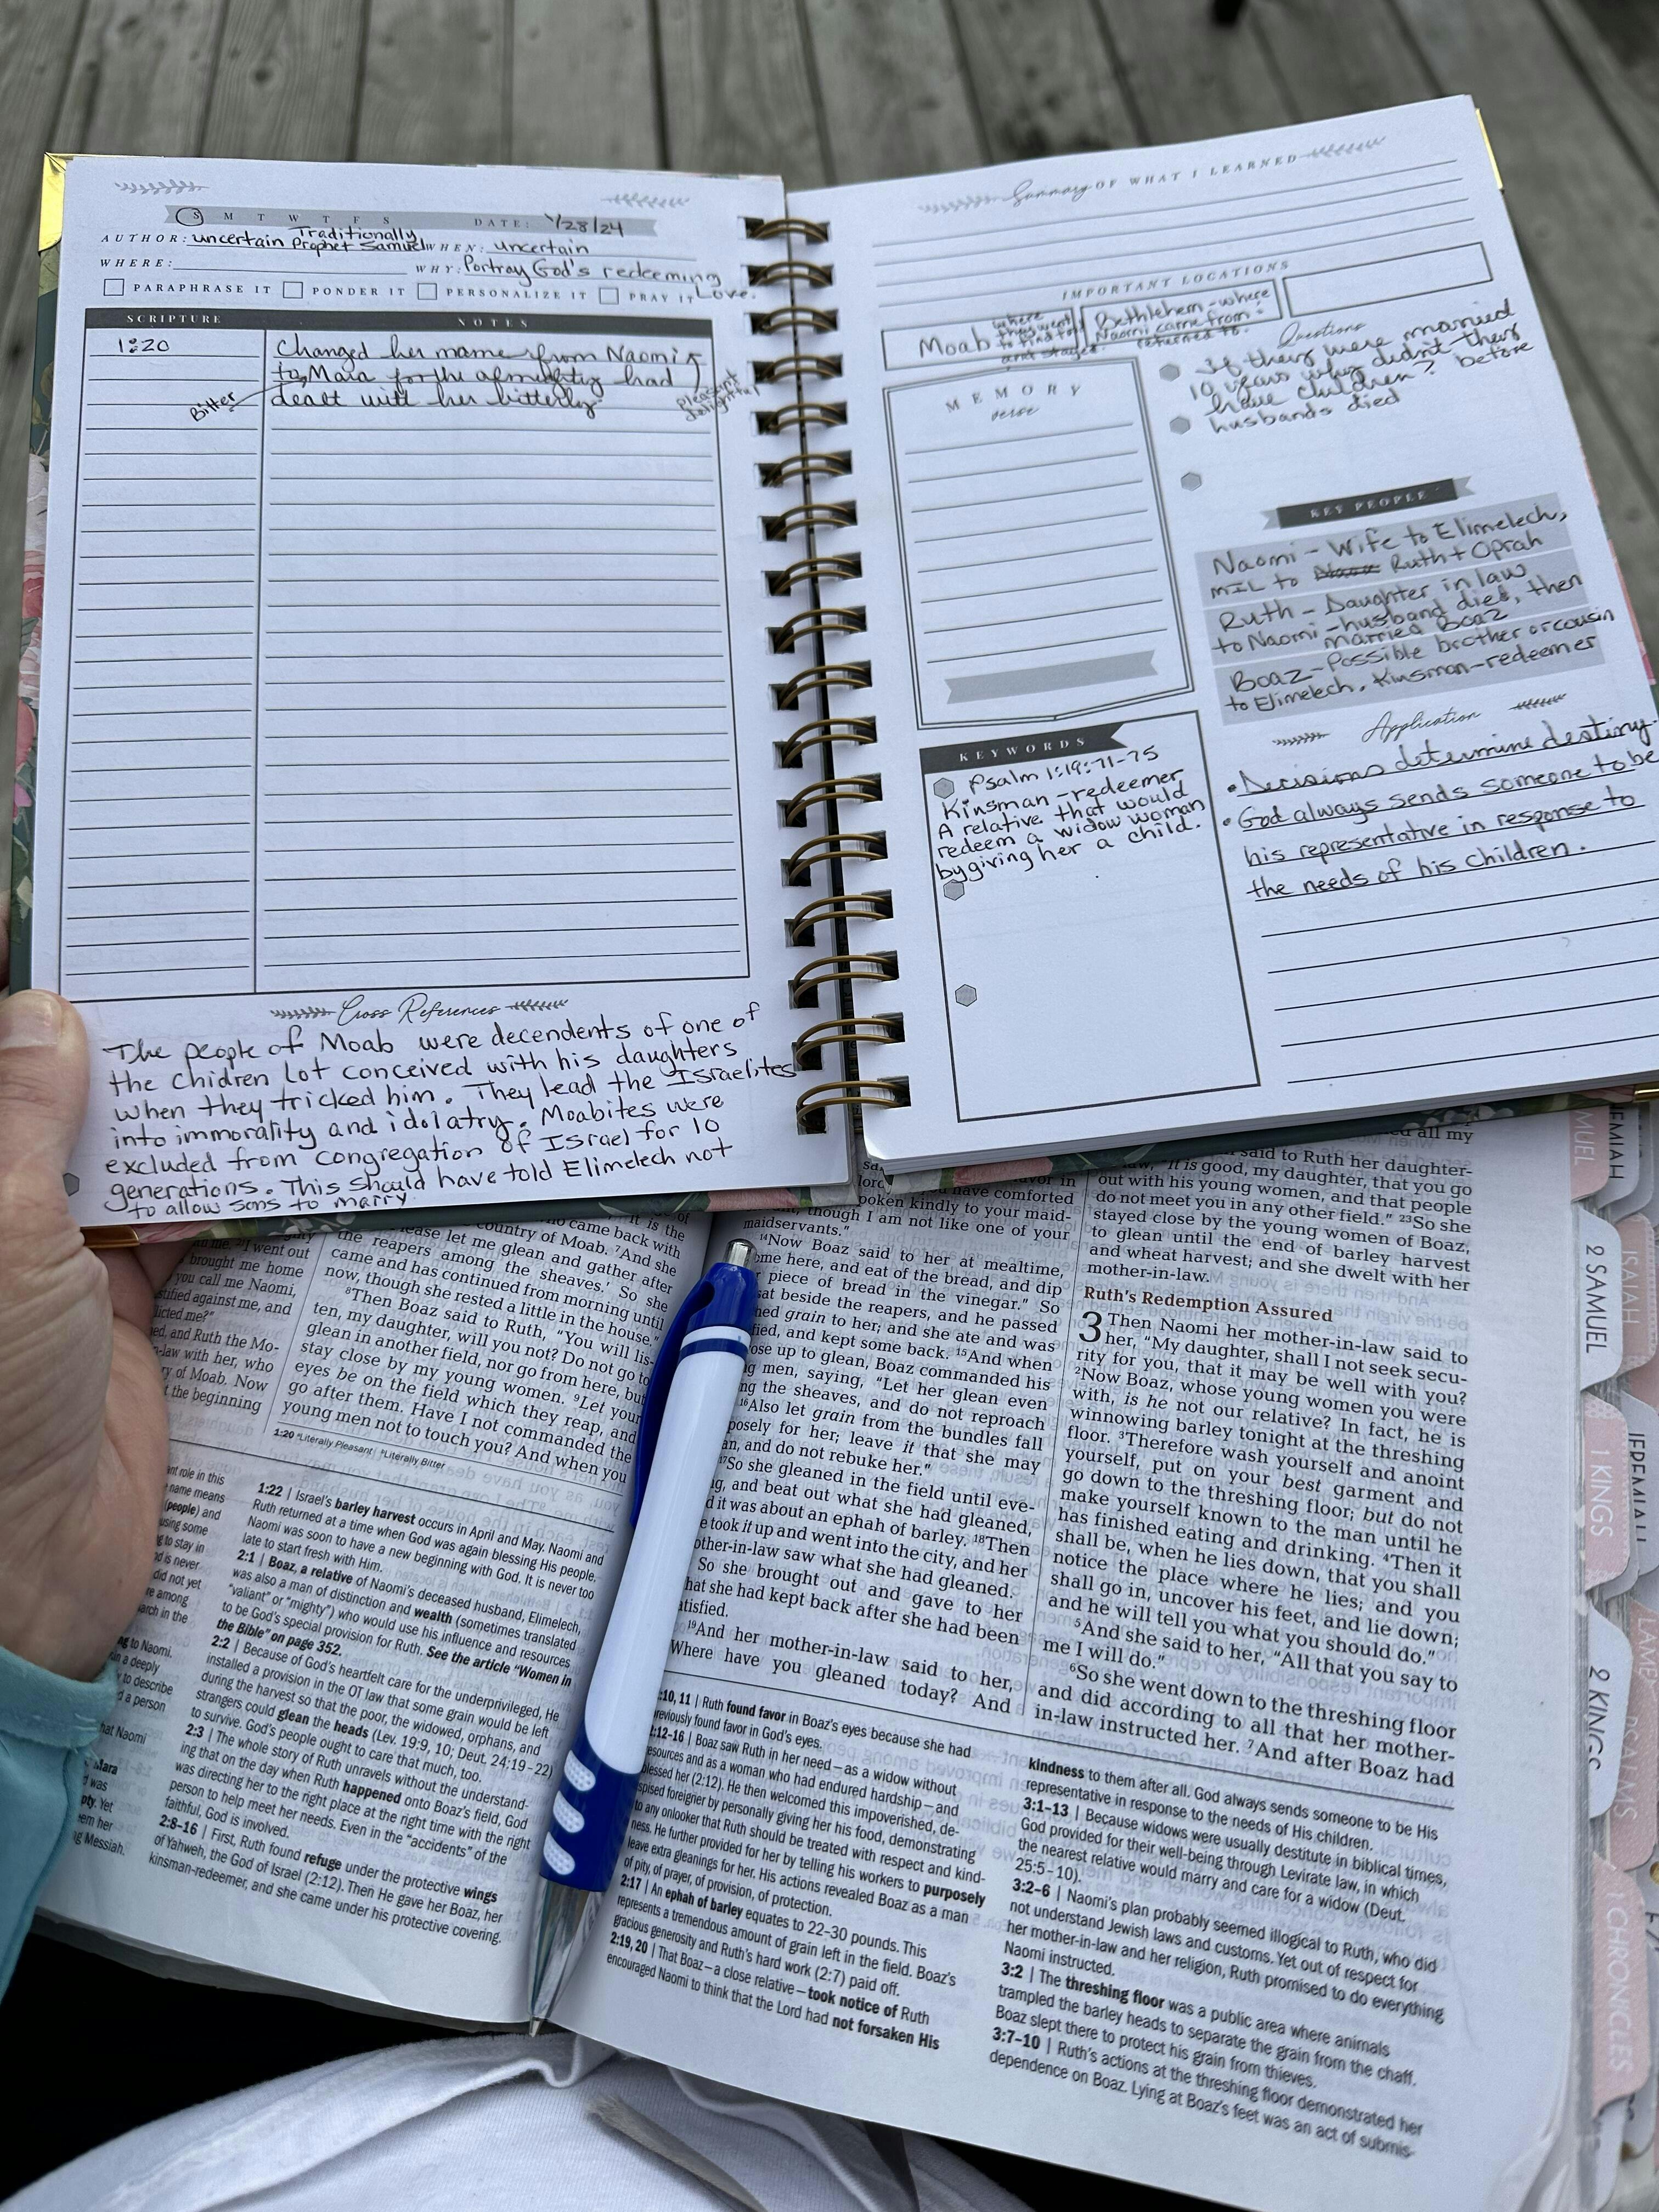 S M T W T F S DATE: 1/28/24
Traditionally
AUTHOR: uncertain Prophet Samuel WHEN: uncertain
WHERE: WHY: Portray God's redeeming
Love.
PARAPHRASE IT PONDER IT PERSONALIZE IT PRAY IT
SCRIPTURE NOTES
1:20 Changed her name from Naomi
to Mara for the almighty had
dealt with her bitterly
Bitter
pleasant
delightful
Cross References
The people of Moab were decendents of one of
the chidren Lot conceived with his daughters
when they tricked him. They lead the Israelites
into immorality and idolatry. Moabites were
excluded from congregation of Israel for 10
generations. This should have told Elimelech not
to allow sons to marry
Summary OF WHAT I LEARNED
IMPORTANT LOCATIONS
Moab where
they went
to find food
and stayed.
Bethlehem - where
Naomi came from
returned to.
MEMORY
verse
Questions
If they were married
10 years why didn't they
have children? before
husbands died
KEY PEOPLE
Naomi - Wife to Elimelech,
MIL to Ruth + Oprah
Ruth - Daughter in law
to Naomi - husband died, then
married Boaz
Boaz - Possible brother or cousin
to Elimelech. Kinsman-redeemer
KEYWORDS
Psalm 1:19:71-75
Kinsman-redeemer
A relative that would
redeem a widow woman
by giving her a child.
Application
• Decisions determine destiny.
• God always sends someone to be
his representative in response to
the needs of his children.
I went out
brought me home
you call me Naomi,
against me, and
me?"
and Ruth the Mo-
-law with her, who
of Moab. Now
the beginning
came back with
country of Moab. 7And she
let me glean and gather after
the reapers among the sheaves.' So she
came and has continued from morning until
now, though she rested a little in the house."
8Then Boaz said to Ruth, "You will lis-
ten, my daughter, will you not? Do not go to
glean in another field, nor go from here, but
stay close by my young women. 9Let your
eyes be on the field which they reap, and
go after them. Have I not commanded the
young men not to touch you? And when you
1:20 Literally Pleasant | Literally Bitter
have comforted
spoken kindly to your maid-
though I am not like one of your
maidservants."
14Now Boaz said to her at mealtime,
here, and eat of the bread, and dip
piece of bread in the vinegar." So
sat beside the reapers, and he passed
grain to her; and she ate and was
and kept some back. 15And when
up to glean, Boaz commanded his
men, saying, "Let her glean even
the sheaves, and do not reproach
16Also let grain from the bundles fall
for her; leave it that she may
and do not rebuke her."
17So she gleaned in the field until eve-
and beat out what she had gleaned,
it was about an ephah of barley. 18Then
took it up and went into the city, and her
mother-in-law saw what she had gleaned.
So she brought out and gave to her
what she had kept back after she had been
satisfied.
19And her mother-in-law said to her,
"Where have you gleaned today? And
all my
said to Ruth her daughter-
"It is good, my daughter, that you go
out with his young women, and that people
do not meet you in any other field." 23So she
stayed close by the young women of Boaz,
to glean until the end of barley harvest
and wheat harvest; and she dwelt with her
mother-in-law.
Ruth's Redemption Assured
3 Then Naomi her mother-in-law said to
her, "My daughter, shall I not seek secu-
rity for you, that it may be well with you?
2Now Boaz, whose young women you were
with, is he not our relative? In fact, he is
winnowing barley tonight at the threshing
floor. 3Therefore wash yourself and anoint
yourself, put on your best garment and
go down to the threshing floor; but do not
make yourself known to the man until he
has finished eating and drinking. 4Then it
shall be, when he lies down, that you shall
notice the place where he lies; and you
shall go in, uncover his feet, and lie down;
and he will tell you what you should do."
5And she said to her, "All that you say to
me I will do."
6So she went down to the threshing floor
and did according to all that her mother-
in-law instructed her. 7And after Boaz had
role in this
name means
(people) and
using some
to stay in
is never
did not yet
among
in the
to Naomi.
a deeply
to describe
a person
that Naomi
Mara
was
Yet
her
Messiah.
1:22 | Israel's barley harvest occurs in April and May. Naomi and
Ruth returned at a time when God was again blessing His people.
Naomi was soon to have a new beginning with God. It is never too
late to start fresh with Him.
2:1 | Boaz, a relative of Naomi's deceased husband, Elimelech,
was also a man of distinction and wealth (sometimes translated
"valiant" or "mighty") who would use his influence and resources
to be God's special provision for Ruth. See the article "Women in
the Bible" on page 352.
2:2 | Because of God's heartfelt care for the underprivileged, He
installed a provision in the OT law that some grain would be left
during the harvest so that the poor, the widowed, orphans, and
strangers could glean the heads (Lev. 19:9, 10; Deut. 24:19–22)
to survive. God's people ought to care that much, too.
2:3 | The whole story of Ruth unravels without the understand-
ing that on the day when Ruth happened onto Boaz's field, God
was directing her to the right place at the right time with the right
person to help meet her needs. Even in the "accidents" of the
faithful, God is involved.
2:8–16 | First, Ruth found refuge under the protective wings
of Yahweh, the God of Israel (2:12). Then He gave her Boaz, her
kinsman-redeemer, and she came under his protective covering.
:10, 11 | Ruth found favor in Boaz's eyes because she had
previously found favor in God's eyes.
:12–16 | Boaz saw Ruth in her need—as a widow without
resources and as a woman who had endured hardship—and
blessed her (2:12). He then welcomed this impoverished, de-
spised foreigner by personally giving her his food, demonstrating
to any onlooker that Ruth should be treated with respect and kind-
ness. He further provided for her by telling his workers to purposely
leave extra gleanings for her. His actions revealed Boaz as a man
of pity, of prayer, of provision, of protection.
2:17 | An ephah of barley equates to 22–30 pounds. This
represents a tremendous amount of grain left in the field. Boaz's
gracious generosity and Ruth's hard work (2:7) paid off.
2:19, 20 | That Boaz—a close relative—took notice of Ruth
encouraged Naomi to think that the Lord had not forsaken His
kindness to them after all. God always sends someone to be His
representative in response to the needs of His children.
3:1–13 | Because widows were usually destitute in biblical times,
God provided for their well-being through Levirate law, in which
the nearest relative would marry and care for a widow (Deut.
25:5–10).
3:2–6 | Naomi's plan probably seemed illogical to Ruth, who did
not understand Jewish laws and customs. Yet out of respect for
her mother-in-law and her religion, Ruth promised to do everything
Naomi instructed.
3:2 | The threshing floor was a public area where animals
trampled the barley heads to separate the grain from the chaff.
Boaz slept there to protect his grain from thieves.
3:7–10 | Ruth's actions at the threshing floor demonstrated her
dependence on Boaz. Lying at Boaz's feet was an act of submis-
2 SAMUEL
1 KINGS
2 KINGS
1 CHRONICLES
ISAIAH
JEREMIAH
LAME
PSALMS